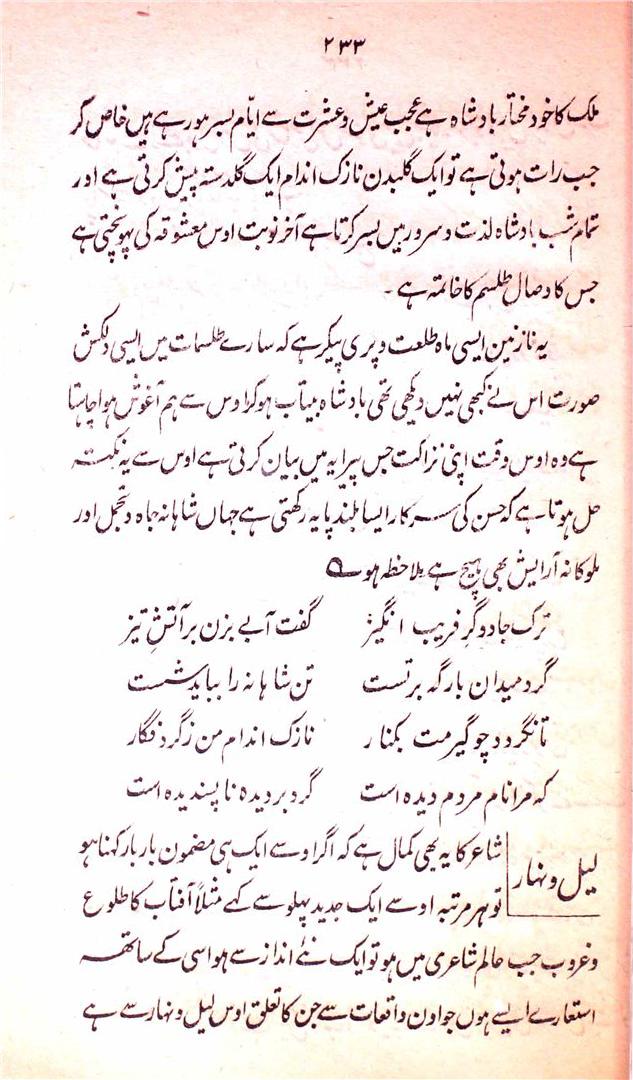 ۲۳۳
ملک کا خود مختار بادشاہ ہے عجب عیش و عشرت سے ایّام بسر ہو رہے ہیں خاص کر
جب رات ہوتی ہے تو ایک گلبدن نازک اندام ایک گلدستہ پیش کرتی ہے اور
تمام شب بادشاہ لذت و سرور میں بسر کرتا ہے آخر نوبت اوس معشوقہ کی پہونچتی ہے
جس کا وصال طلسم کا خاتمہ ہے ۔
یہ نازنین ایسی ماہ طلعت و پری پیکر ہے کہ سارے طلسمات میں ایسی دلکش
صورت اس نے کبھی نہیں دیکھی تھی بادشاہ بیتاب ہو کر اوس سے ہم آغوش ہوا چاہتا
ہے وہ اوس وقت اپنی نزاکت جس پیرایہ میں بیان کرتی ہے اوس سے یہ نکتہ
حل ہوتا ہے کہ حسن کی سرکار ایسا بلند پایہ رکھتی ہے جہاں شاہانہ جاہ و تجمل اور
ملوکانہ آرایش بھی ہیچ ہے ملاحظہ ہو ؎
ترک جادوگرِ فریب انگیز گفت آبے بزن بر آتشِ تیز
گرد میدان بارگہ برتست تن شاہانہ را بباید شست
تا نگردد چو گیرمت بکنار نازک اندام من ز گرد فگار
کہ مرا نام مردم دیدہ است گرد بر دیدہ نا پسندیدہ است
لیل و نہار
شاعر کا یہ بھی کمال ہے کہ اگر اوسے ایک ہی مضمون بار بار کہنا ہو
تو ہر مرتبہ اوسے ایک جدید پہلو سے کہے مثلاً آفتاب کا طلوع
و غروب جب عالم شاعری میں ہو تو ایک نئے انداز سے ہو اسی کے ساتھہ
استعارے ایسے ہوں جو اون واقعات سے جن کا تعلق اوس لیل و نہار سے ہے